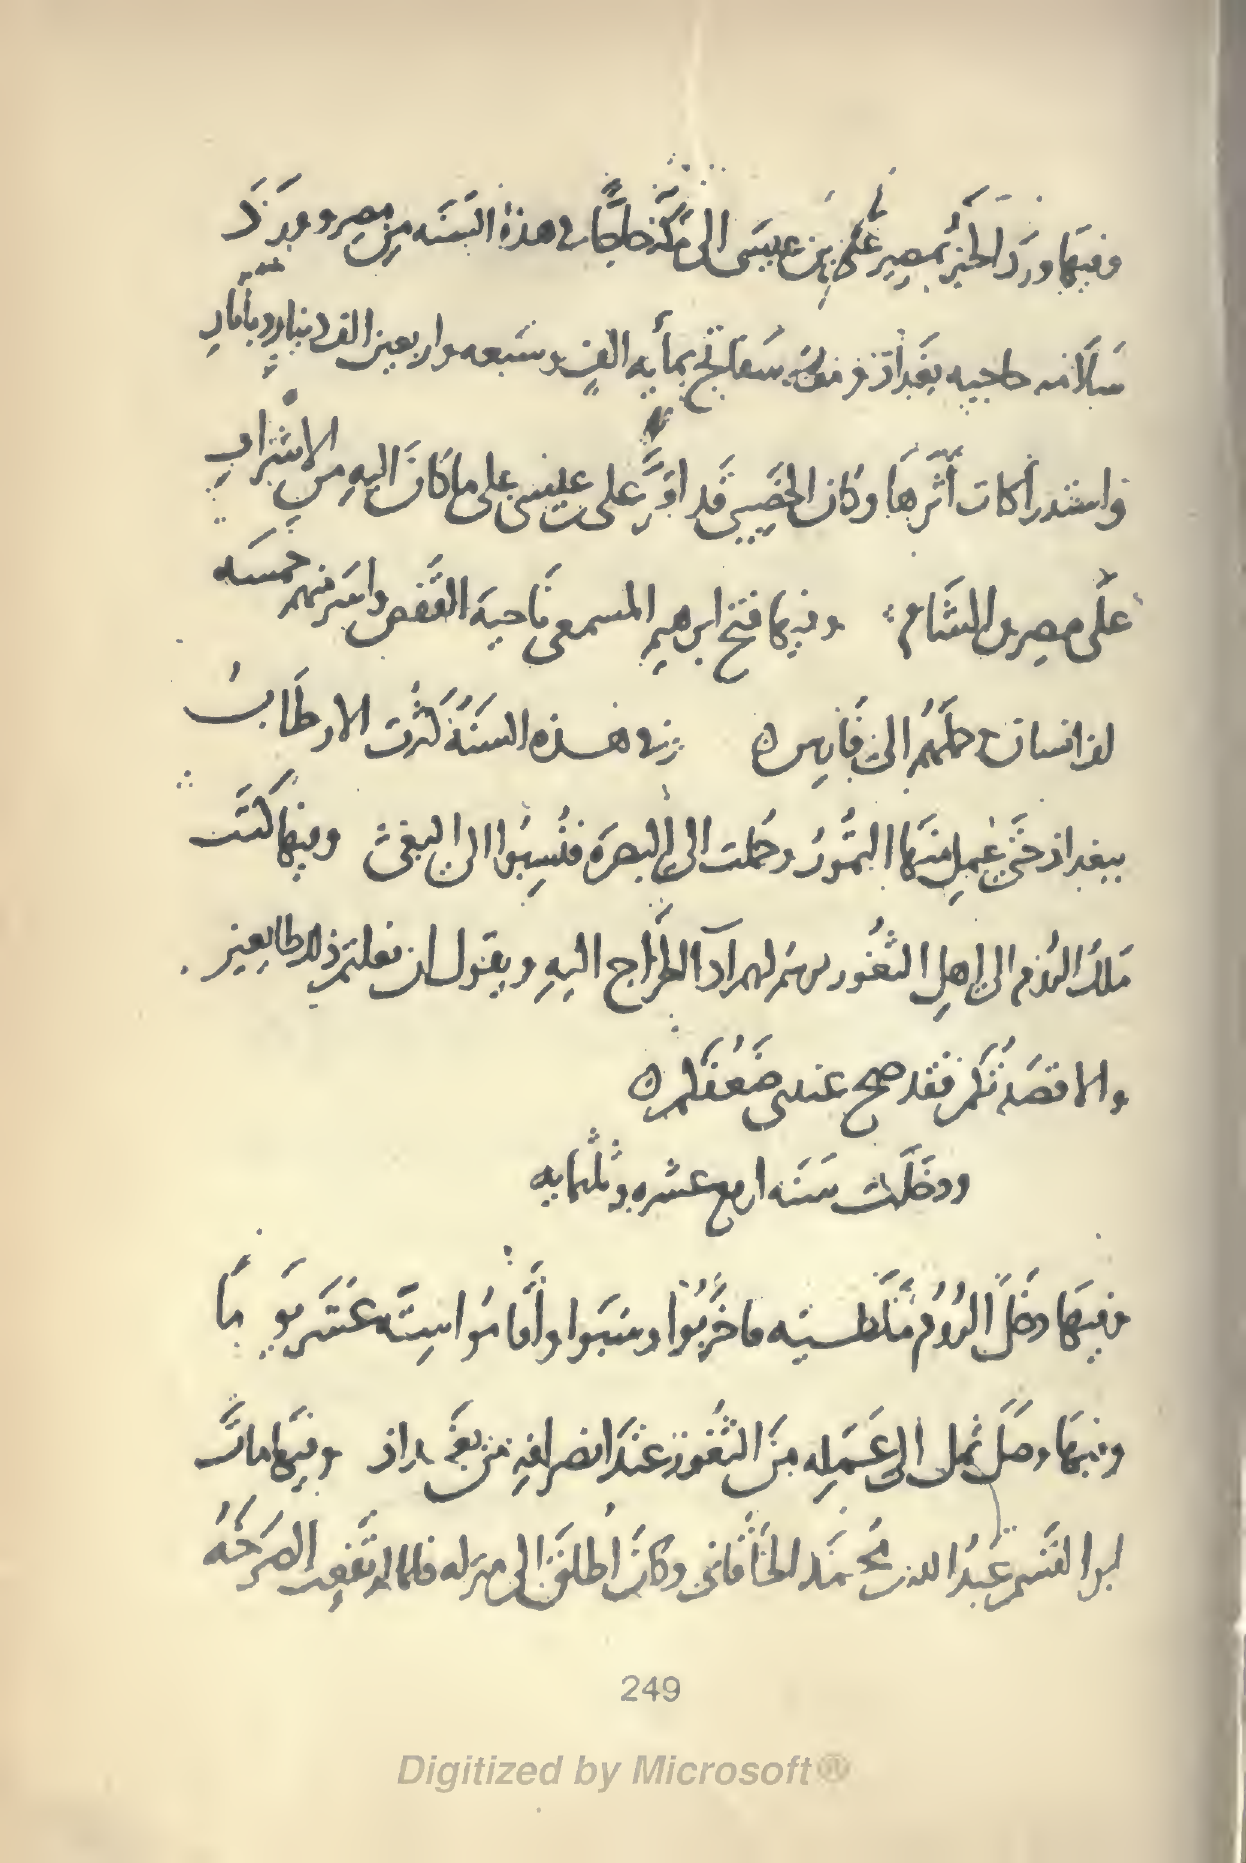 وفيها ورد الخبر بمصير علي بن عيسى الى مكة حاجا في هذه السنه من مصر وورد
سلامه حاجبه بغداذ ومعه سفاتج بمايه الف وسبعه واربعين الف دينار
واستدراكات اثرها وكان الخصيبى قد اقر على بن عيسى على ما كان اليه من الاشراف
على مصر والشام وفيها فتح ابرهيم المسمعى ناحية القفص واسر منهم خمسه
الف انسان حملهم الى فارس ه وفي هذه السنة كثرت الارطاب
ببغداذ حتى عمل منها التمور وحملت الى البصرة فنسبوا الى البغى وفيها كتب
ملك الروم الى اهل الثغور يرسم لهم اداآ الخراج اليه ويقول ان فعلتم ذلك طايعين
والا قصدتكم فقد صح عندى ضعفكم ه
ودخلت سنه اربع عشره وثلثمايه
وفيها دخل الروم ملطيه فاخربوا وسبوا واقاموا ستة عشر يوما
وفيها وصل ثمل الى عمله من الثغور عند انصرافه من بغداذ وفيها مات
ابو القسم عبد الله بن محمد الخاقانى وكان اطلق الى منزله فلما
249
Digitized by Microsoft®